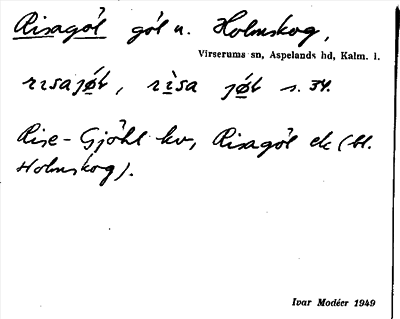 Risagöl göl n. Holmskog,
Virserums sn, Aspelands hd, Kalm. l.
rɪsajø̀l, rɪ̀sa jø̀l s. 34.
Rise-Gjöhl kv, Risagöl ek (bl.
Holmskog).
Ivar Modéer 1949